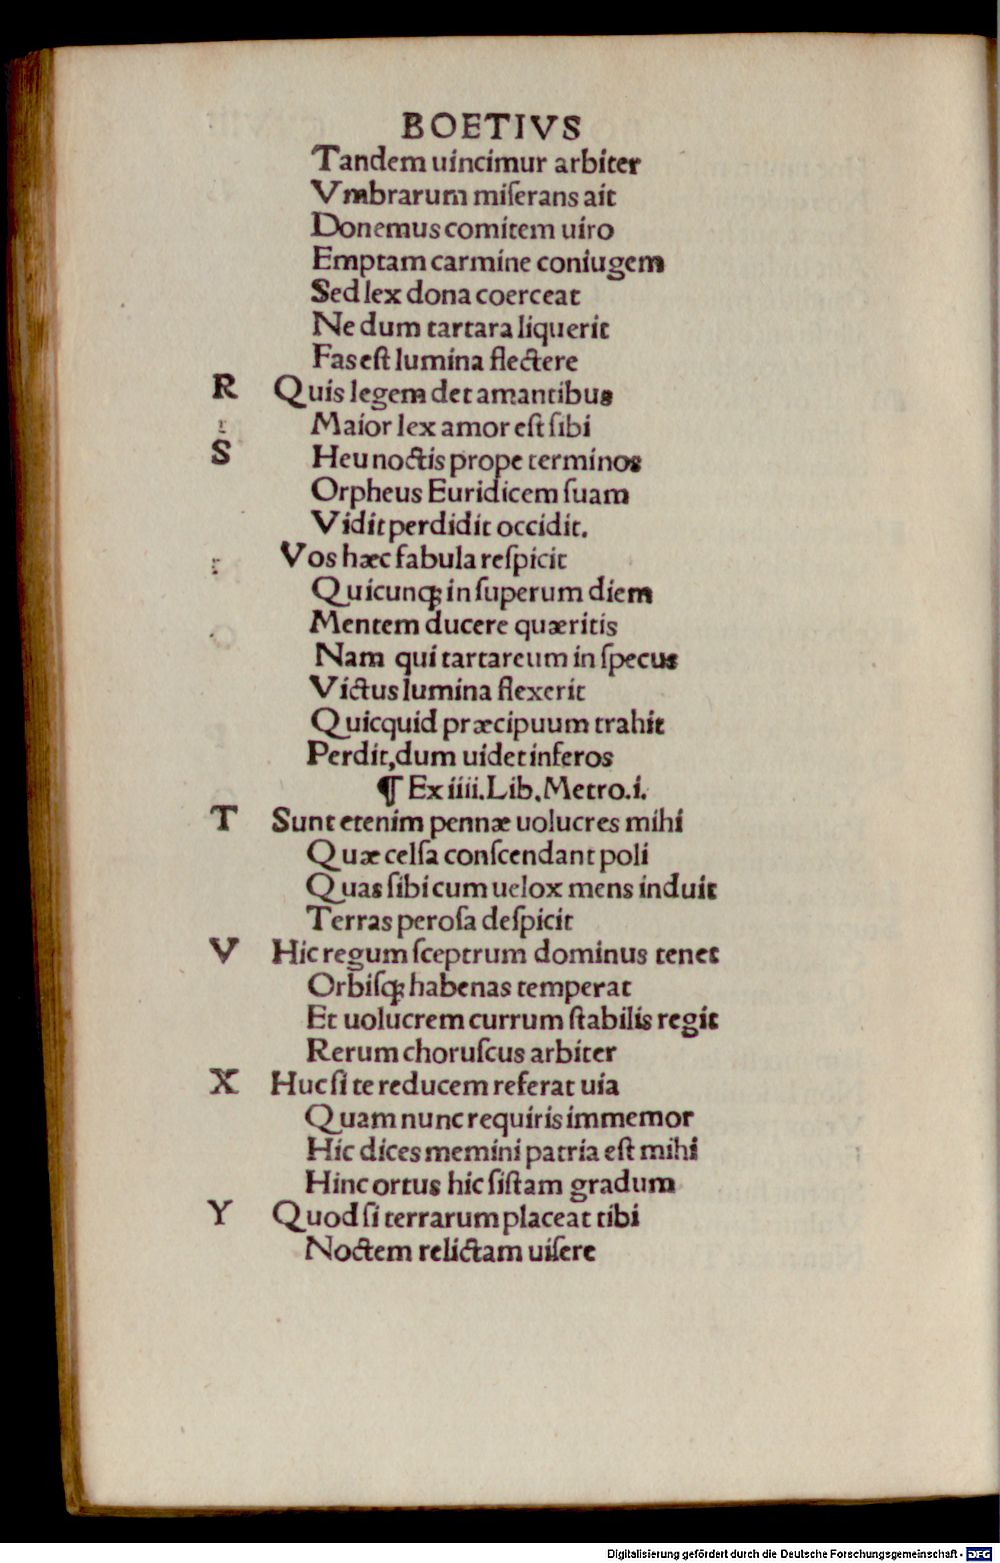 BOETIVS
Tandem uincimur arbiter
Vmbrarum miſerans ait
Donemus comitem uiro
Emptam carmine coniugem
Sed lex dona coerceat
Ne dum tartara liquerit
Fas eſt lumina flectere
R Quis legem det amantibus
Maior lex amor eſt ſibi
S Heu noctis prope terminos
Orpheus Euridicem ſuam
Vidit perdidit occidit.
Vos hæc fabula reſpicit
Quicunqꝫ in ſuperum diem
Mentem ducere quæritis
Nam qui tartareum in ſpecus
Victus lumina flexerit
Quicquid præcipuum trahit
Perdit, dum uidet inferos
¶ Ex iiii. Lib. Metro. i.
T Sunt etenim pennæ uolucres mihi
Quæ celſa conſcendant poli
Quas ſibi cum uelox mens induit
Terras peroſa deſpicit
V Hic regum ſceptrum dominus tenet
Orbiſqꝫ habenas temperat
Et uolucrem currum ſtabilis regit
Rerum choruſcus arbiter
X Huc ſi te reducem referat uia
Quam nunc requiris immemor
Hic dices memini patria eſt mihi
Hinc ortus hic ſiſtam gradum
Y Quod ſi terrarum placeat tibi
Noctem relictam uiſere
Digitalisierung gefördert durch die Deutsche Forschungsgemeinschaft - DFG